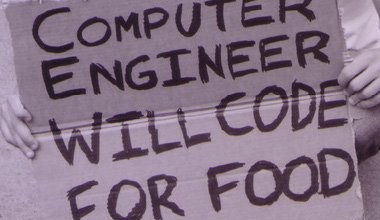 COMPUTER
ENGINEER
WILL CODE
FOR FOOD